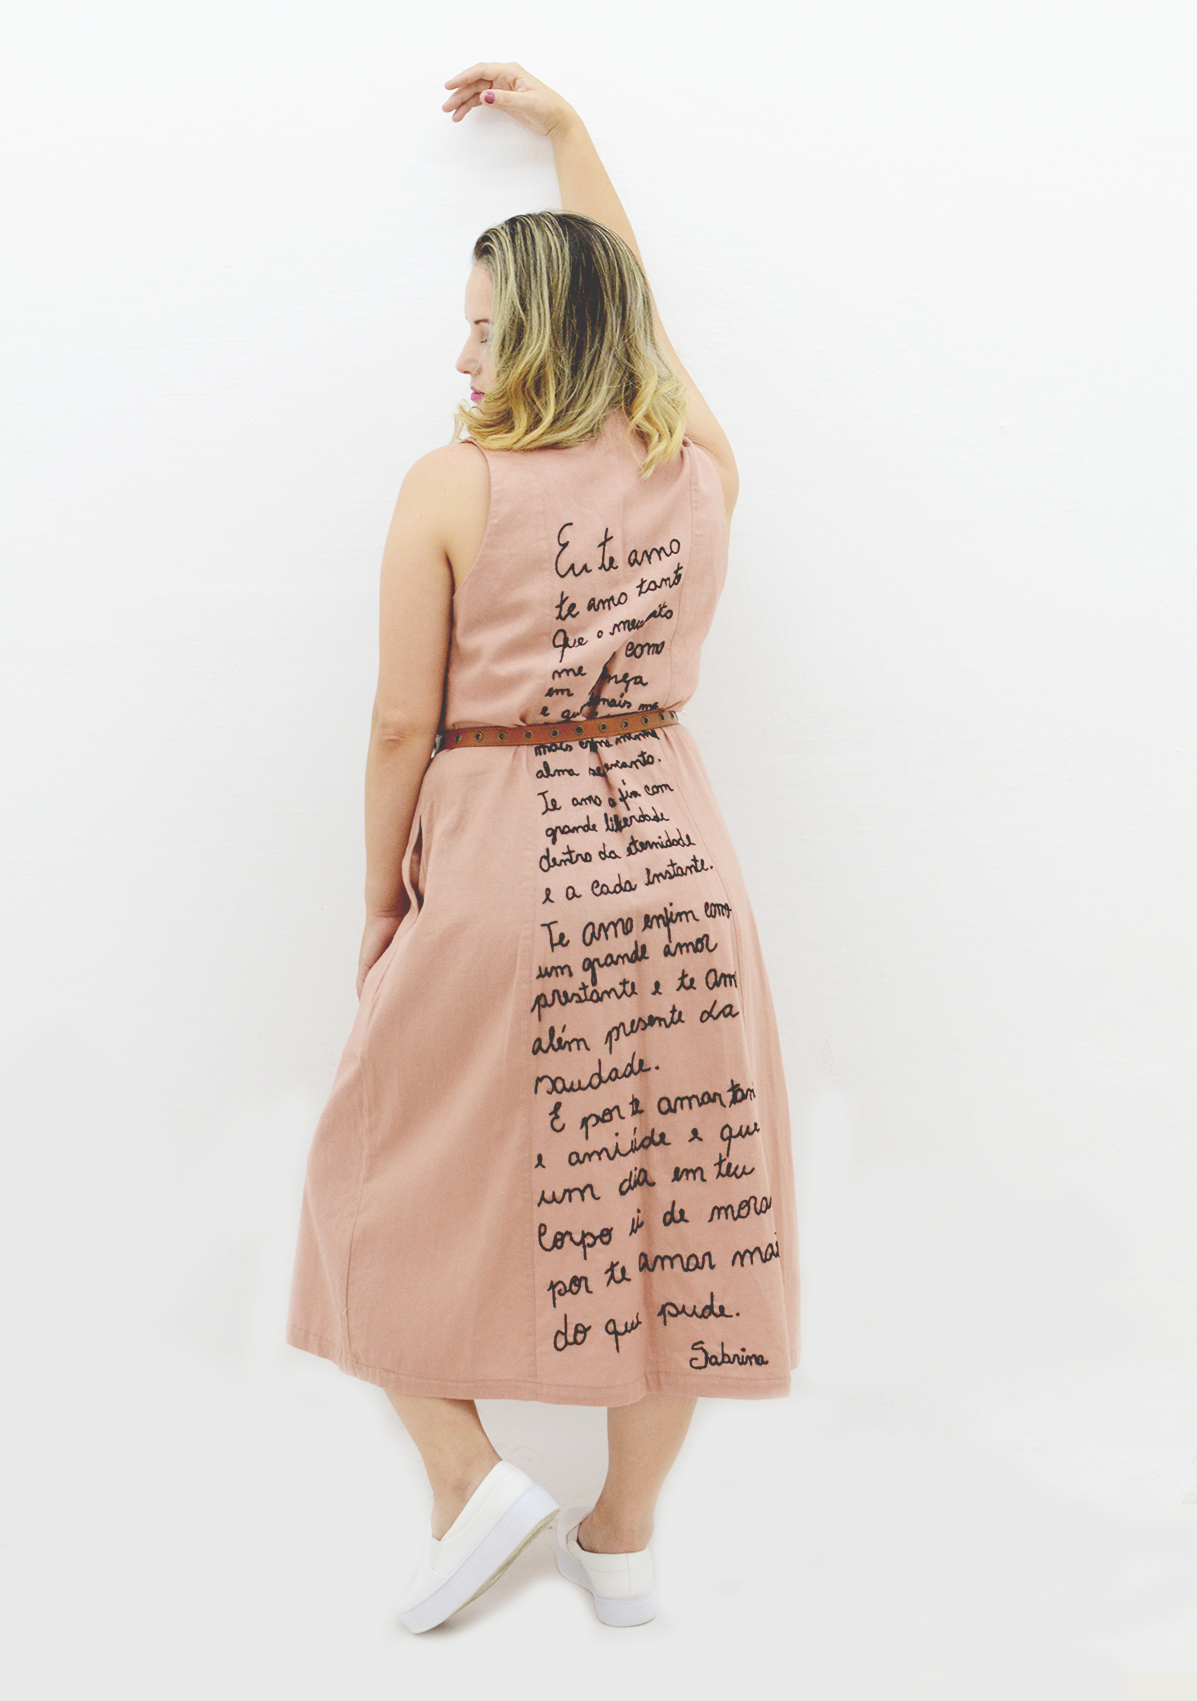 Eu te amo
te amo tanto
Que o meu
me como
em
e que jamais me
mais entre minha
alma se
Te amo a fim com
grande liberdade
dentro da eternidade
e a cada instante.
Te amo enfim como
um grande amor
prestante e te am
além presente da
saudade.
E por te amar tan
e amiúde e que
um dia em teu
corpo de mora
por te amar mai
do que pude.
Sabrina